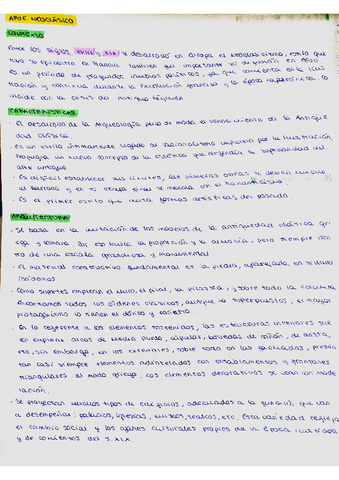 ARTE NEOCLÁSICO
CONTEXTO
Entre los siglos XVIII y XIX se desarrolló en Europa el neoclasicismo, estilo que
tuvo su epicentro en Francia también fue importante su difusión en EEUU
es un período de profundos cambios políticos, ya que comienza en la Ilus
tración y continúa durante la Revolución francesa y la época napoleónica, lo
incide con la crisis del Antiguo Régimen
CARACTERÍSTICAS
· El desarrollo de la Arqueología puso de moda el conocimiento de la Antigüe
dad Clásica
· Es un estilo íntimamente ligado al racionalismo impuesto por la Ilustración
Propugna un nuevo concepto de la estética que defendía la superioridad del
arte antiguo
· Es difícil establecer sus límites, las primeras obras se deben mucho
al barroco y en su etapa final se mezcla con el romanticismo
· Es el primer estilo que imita formas artísticas del pasado
ARQUITECTURA
· Se basa en la imitación de los modelos de la antigüedad clásica grie
ga y romana. En ella busca la proporción y la armonía, pero siempre den
tro de una escala grandiosa y monumental
· El material constructivo fundamental es la piedra, aparejada, en sillares
isódomos
· Como soportes emplean el muro, el pilar, la pilastra, y sobre todo la columna
Encontramos todos los órdenes clásicos, aunque no superpuestos, el mayor
protagonismo lo tienen el dórico y corintio
· En lo referente a los elementos sostenidos, las estructuras interiores sue
len emplear arcos de medio punto, cúpulas, bóvedas de cañón, de arista,
etc, sin embargo, en los exteriores, sobre todo en las fachadas, presen
tan casi siempre elementos adintelados con entablamentos y frontones
triangulares al modo griego. Los elementos decorativos se usan con mode
ración.
· Se proyectan muchos tipos de edificios, adecuados a la función que van
a desempeñar: palacios, iglesias, museos, teatros, etc. Esta variedad refleja
el cambio social y los afanes culturales propios de la época ilustrada
y de comienzos del s. XIX.